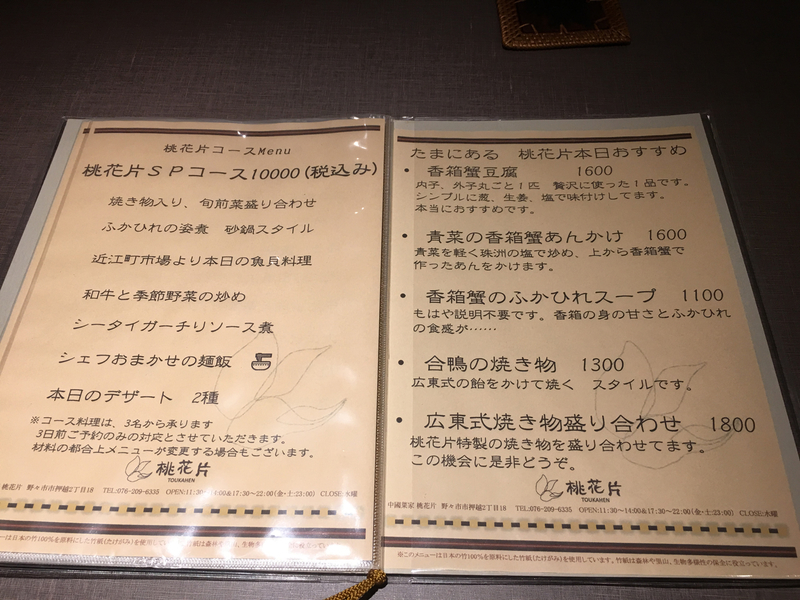 桃花片コースMenu
桃花片ＳＰコース10000(税込み)
焼き物入り、旬前菜盛り合わせ
ふかひれの姿煮　砂鍋スタイル
近江町市場より本日の魚貝料理
和牛と季節野菜の炒め
シータイガーチリソース煮
シェフおまかせの麺飯
本日のデザート　2種
※コース料理は、3名から承ります
3日前ご予約のみの対応とさせていただきます。
材料の都合上メニューが変更する場合もございます。
桃花片
TOUKAHEN
桃花片　野々市市押越2丁目18　TEL:076-209-6335　OPEN:11:30～14:00&17:30～22:00(金・土:23:00)　CLOSE:水曜
ーは日本の竹100%を原料にした竹紙(たけがみ)を使用しています。竹紙は森林や里山、生物多
たまにある　桃花片本日おすすめ
・香箱蟹豆腐　1600
内子、外子丸ごと1匹　贅沢に使った1品です。
シンプルに葱、生姜、塩で味付けしてます。
本当におすすめです。
・青菜の香箱蟹あんかけ　1600
青菜を軽く珠洲の塩で炒め、上から香箱蟹で
作ったあんをかけます。
・香箱蟹のふかひれスープ　1100
もはや説明不要です。香箱の身の甘さとふかひれ
の食感が……
・合鴨の焼き物　1300
広東式の飴をかけて焼く　スタイルです。
・広東式焼き物盛り合わせ　1800
桃花片特製の焼き物を盛り合わせてます。
この機会に是非どうぞ。
桃花片
TOUKAHEN
中國菜家 桃花片　野々市市押越2丁目18　TEL:076-209-6335　OPEN:11:30～14:00&17:30～22:00(金・土:23:00)　CLOSE:水曜
※このメニューは日本の竹100%を原料にした竹紙(たけがみ)を使用しています。竹紙は森林や里山、生物多様性の保全に役立っています。